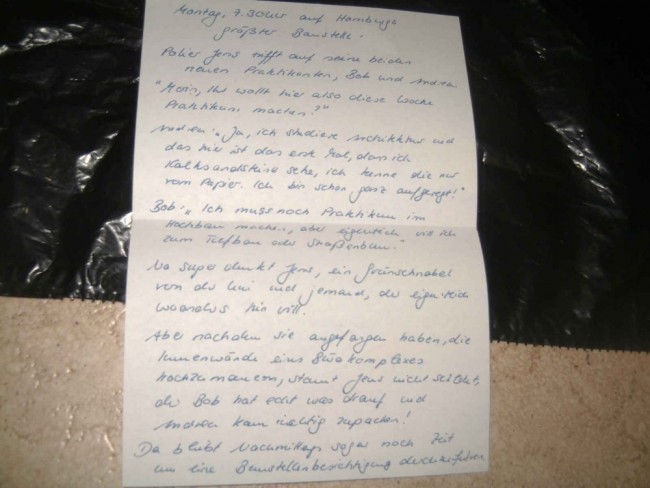 Montag, 7.30 Uhr auf Hamburgs
größter Baustelle.
Polier Jens trifft auf seine beiden
neuen Praktikanten, Bob und Andrea
"Moin, Ihr wollt hier also diese Woche
Praktikum machen?"
Andrea: "Ja, ich studiere Architektur und
das hier ist das erste Mal, dass ich
Kalksandsteine sehe, ich kenne die nur
vom Papier. Ich bin schon ganz aufgeregt!"
Bob: "Ich muss noch Praktikum im
Hochbau machen, aber eigentlich will ich
zum Tiefbau oder Straßenbau."
Na super denkt Jens, ein Grünschnabel
von der Uni und jemand, der eigentlich
woanders hin will.
Aber nachdem sie angefangen haben, die
Innenwände eines Bürokomplexes
hochzumauern, staunt Jens nicht schlecht,
der Bob hat echt was drauf und
Andrea kann richtig zupacken!
Da bleibt Nachmittags sogar noch Zeit
um eine Baustellenbesichtigung durchzuführen